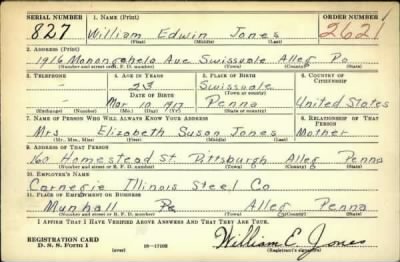 SERIAL NUMBER 1. NAME (Print) ORDER NUMBER
827 William Edwin Jones 2621
(First) (Middle) (Last)
2. ADDRESS (Print)
1916 Monongahela Ave Swissvale Alleg Pa
(Number and street or R. F. D. number) (Town) (County) (State)
3. TELEPHONE 4. AGE IN YEARS 5. PLACE OF BIRTH 6. COUNTRY OF CITIZENSHIP
- 23 Swissvale
DATE OF BIRTH (Town or county)
- Mar 10 1917 Penna United States
(Exchange) (Number) (Mo.) (Day) (Yr.) (State or country)
7. NAME OF PERSON WHO WILL ALWAYS KNOW YOUR ADDRESS 8. RELATIONSHIP OF THAT PERSON
Mrs Elizabeth Susan Jones Mother
(Mr., Mrs., Miss) (First) (Middle) (Last)
9. ADDRESS OF THAT PERSON
160 Homestead St. Pittsburgh Alleg Penna
(Number and street or R. F. D. number) (Town) (County) (State)
10. EMPLOYER'S NAME
Carnegie Illinois Steel Co
11. PLACE OF EMPLOYMENT OR BUSINESS
Munhall Pa Alleg Penna
(Number and street or R. F. D. number) (Town) (County) (State)
I AFFIRM THAT I HAVE VERIFIED ABOVE ANSWERS AND THAT THEY ARE TRUE.
REGISTRATION CARD
D. S. S. Form 1 (over) 16-17105 William E. Jones
(Registrant's signature)